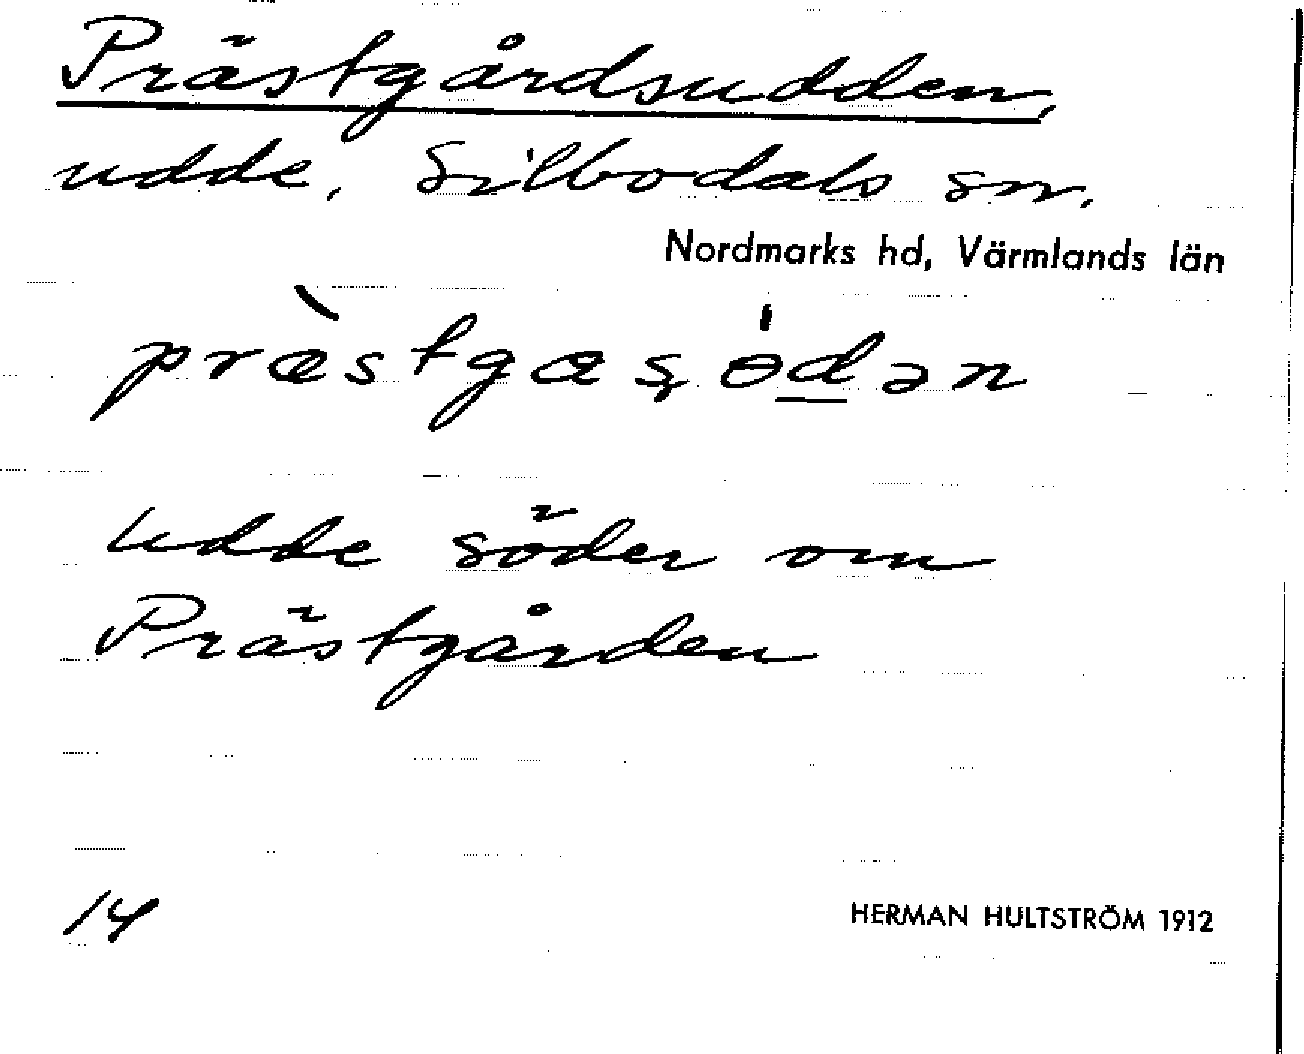 Prästgårdsudden,
udde, Silbodals sn.
Nordmarks hd, Värmlands län
præ̀stgaʂɵ́dən
Udde söder om
Prästgården
14
HERMAN HULTSTRÖM 1912